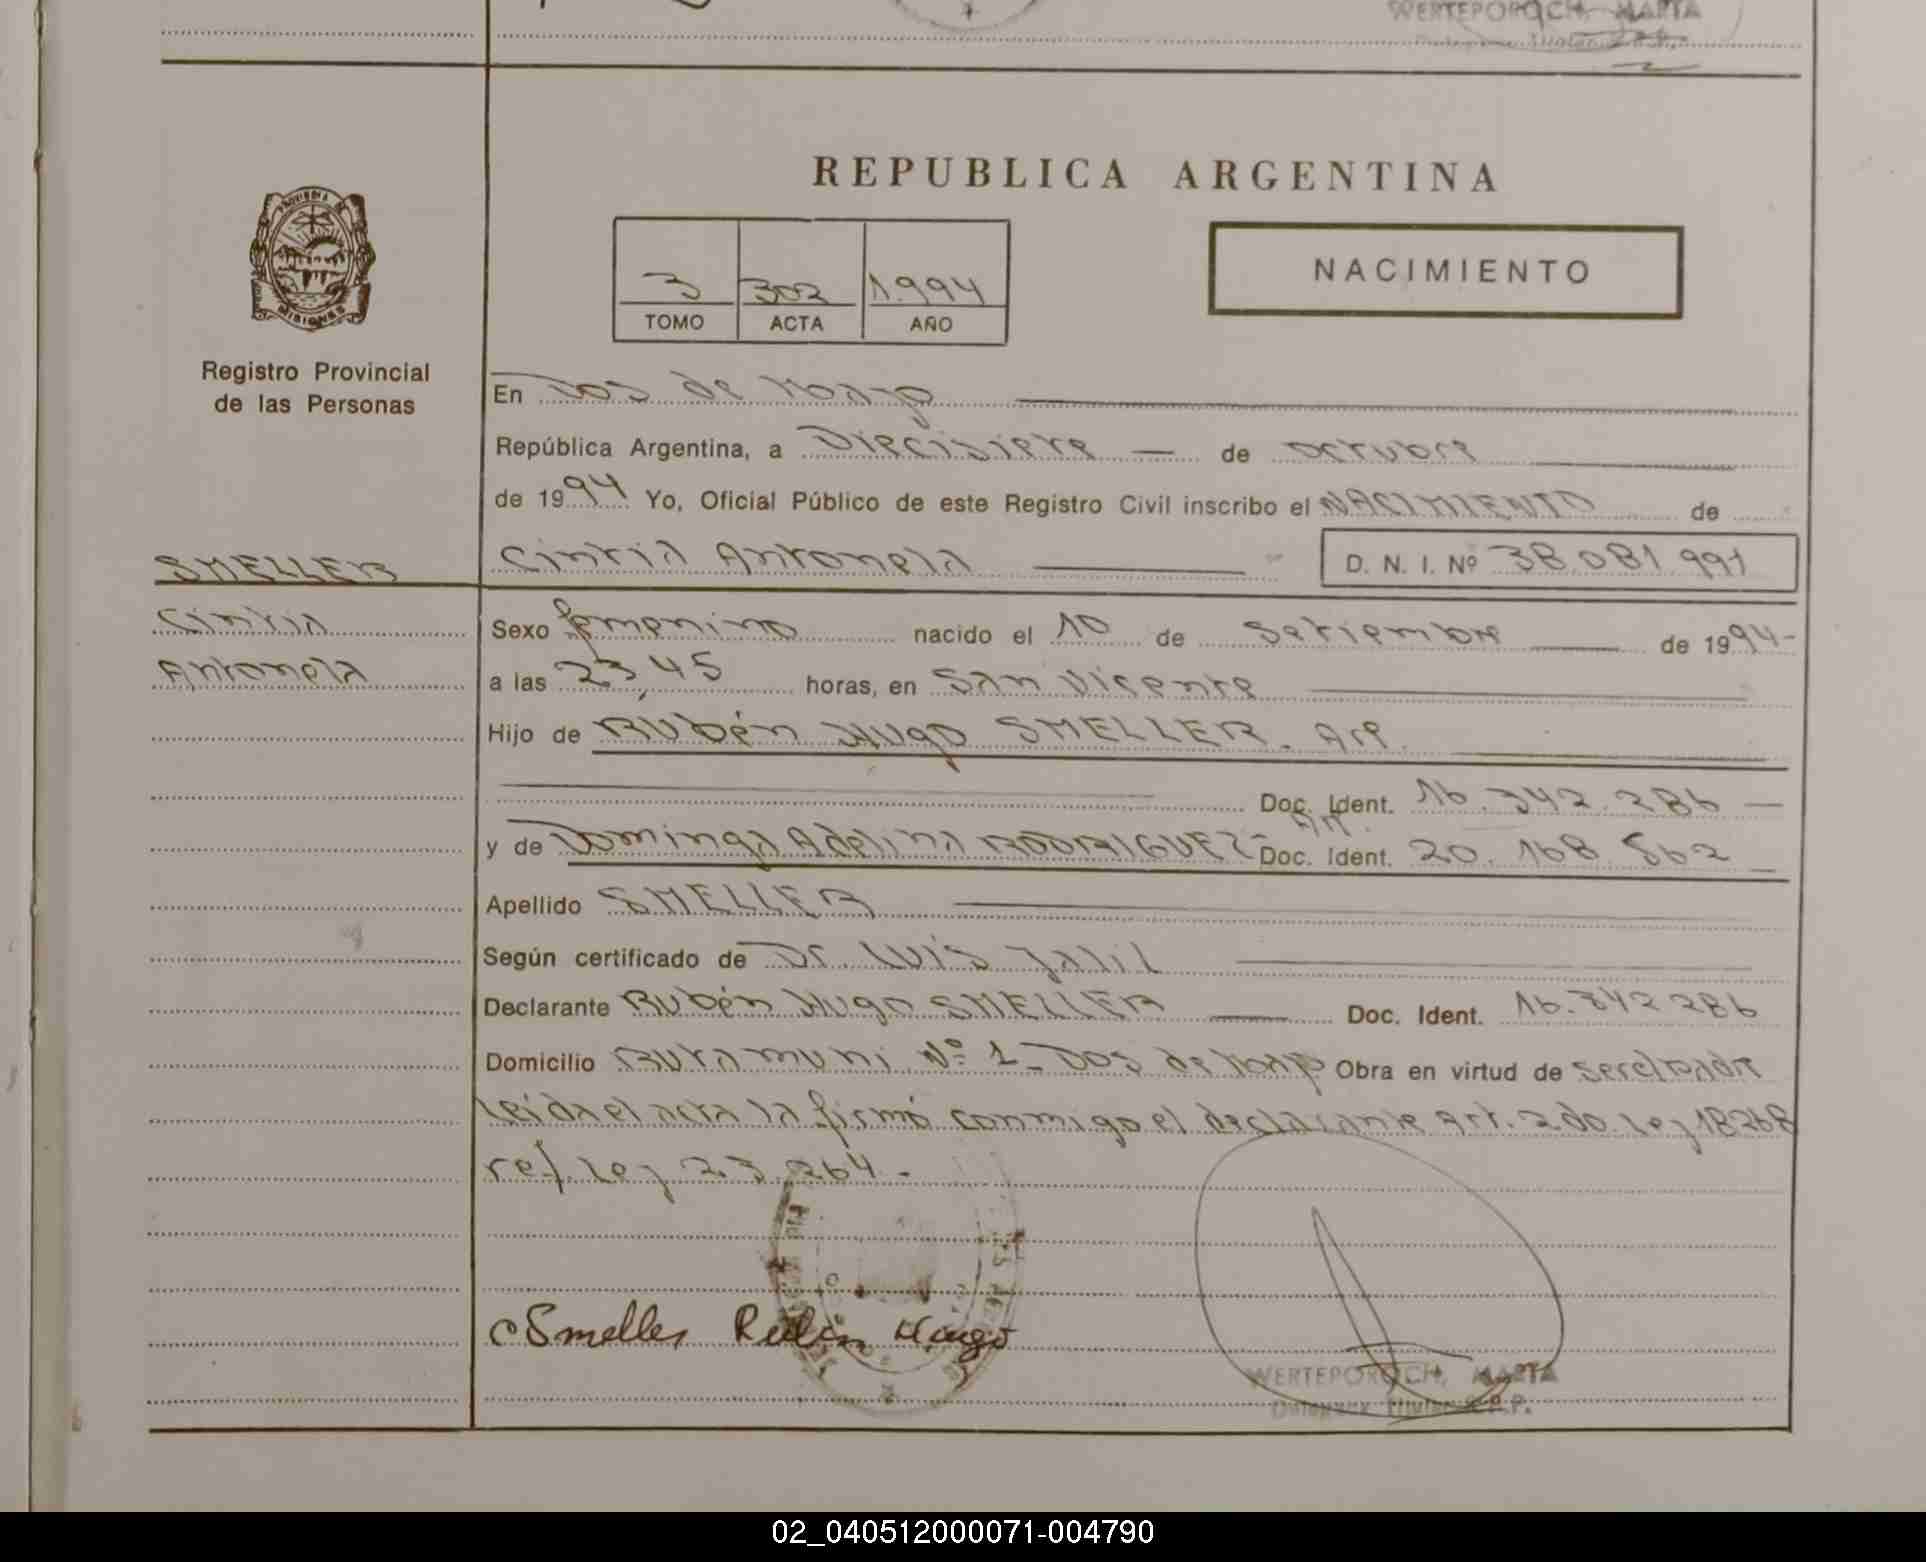 WERTEPOROCH, MARTA
REPUBLICA ARGENTINA
PROVINCIA DE
MISIONES
Registro Provincial
de las Personas
3 302 1.994
TOMO ACTA AÑO
NACIMIENTO
En Dos de Mayo
República Argentina, a Diecisiete — de octubre
de 1994 Yo, Oficial Público de este Registro Civil inscribo el NACIMIENTO de
SMELLER
Cintia Antonela D. N. I. Nº 38.081.991
Cintia
Antonela
Sexo femenino nacido el 10 de Setiembre de 1994-
a las 23,45 horas, en San Vicente
Hijo de Rubén Hugo SMELLER. Arg.
Doc. Ident. 16.342.286 —
y de Dominga Adelina RODRIGUEZ- Doc. Ident. 20.168.862
Apellido SMELLER
Según certificado de Dr. Luis Jalil
Declarante Rubén Hugo SMELLER Doc. Ident. 16.342.286
Domicilio Nº 1 - Dos de Mayo Obra en virtud de ser el padre
Leída el acta la firmó conmigo el declarante Art. 2do. Ley 18268
ref. Ley 23.264.-
Smeller Rubén Hugo
WERTEPOROCH, MARTA
02_040512000071-004790